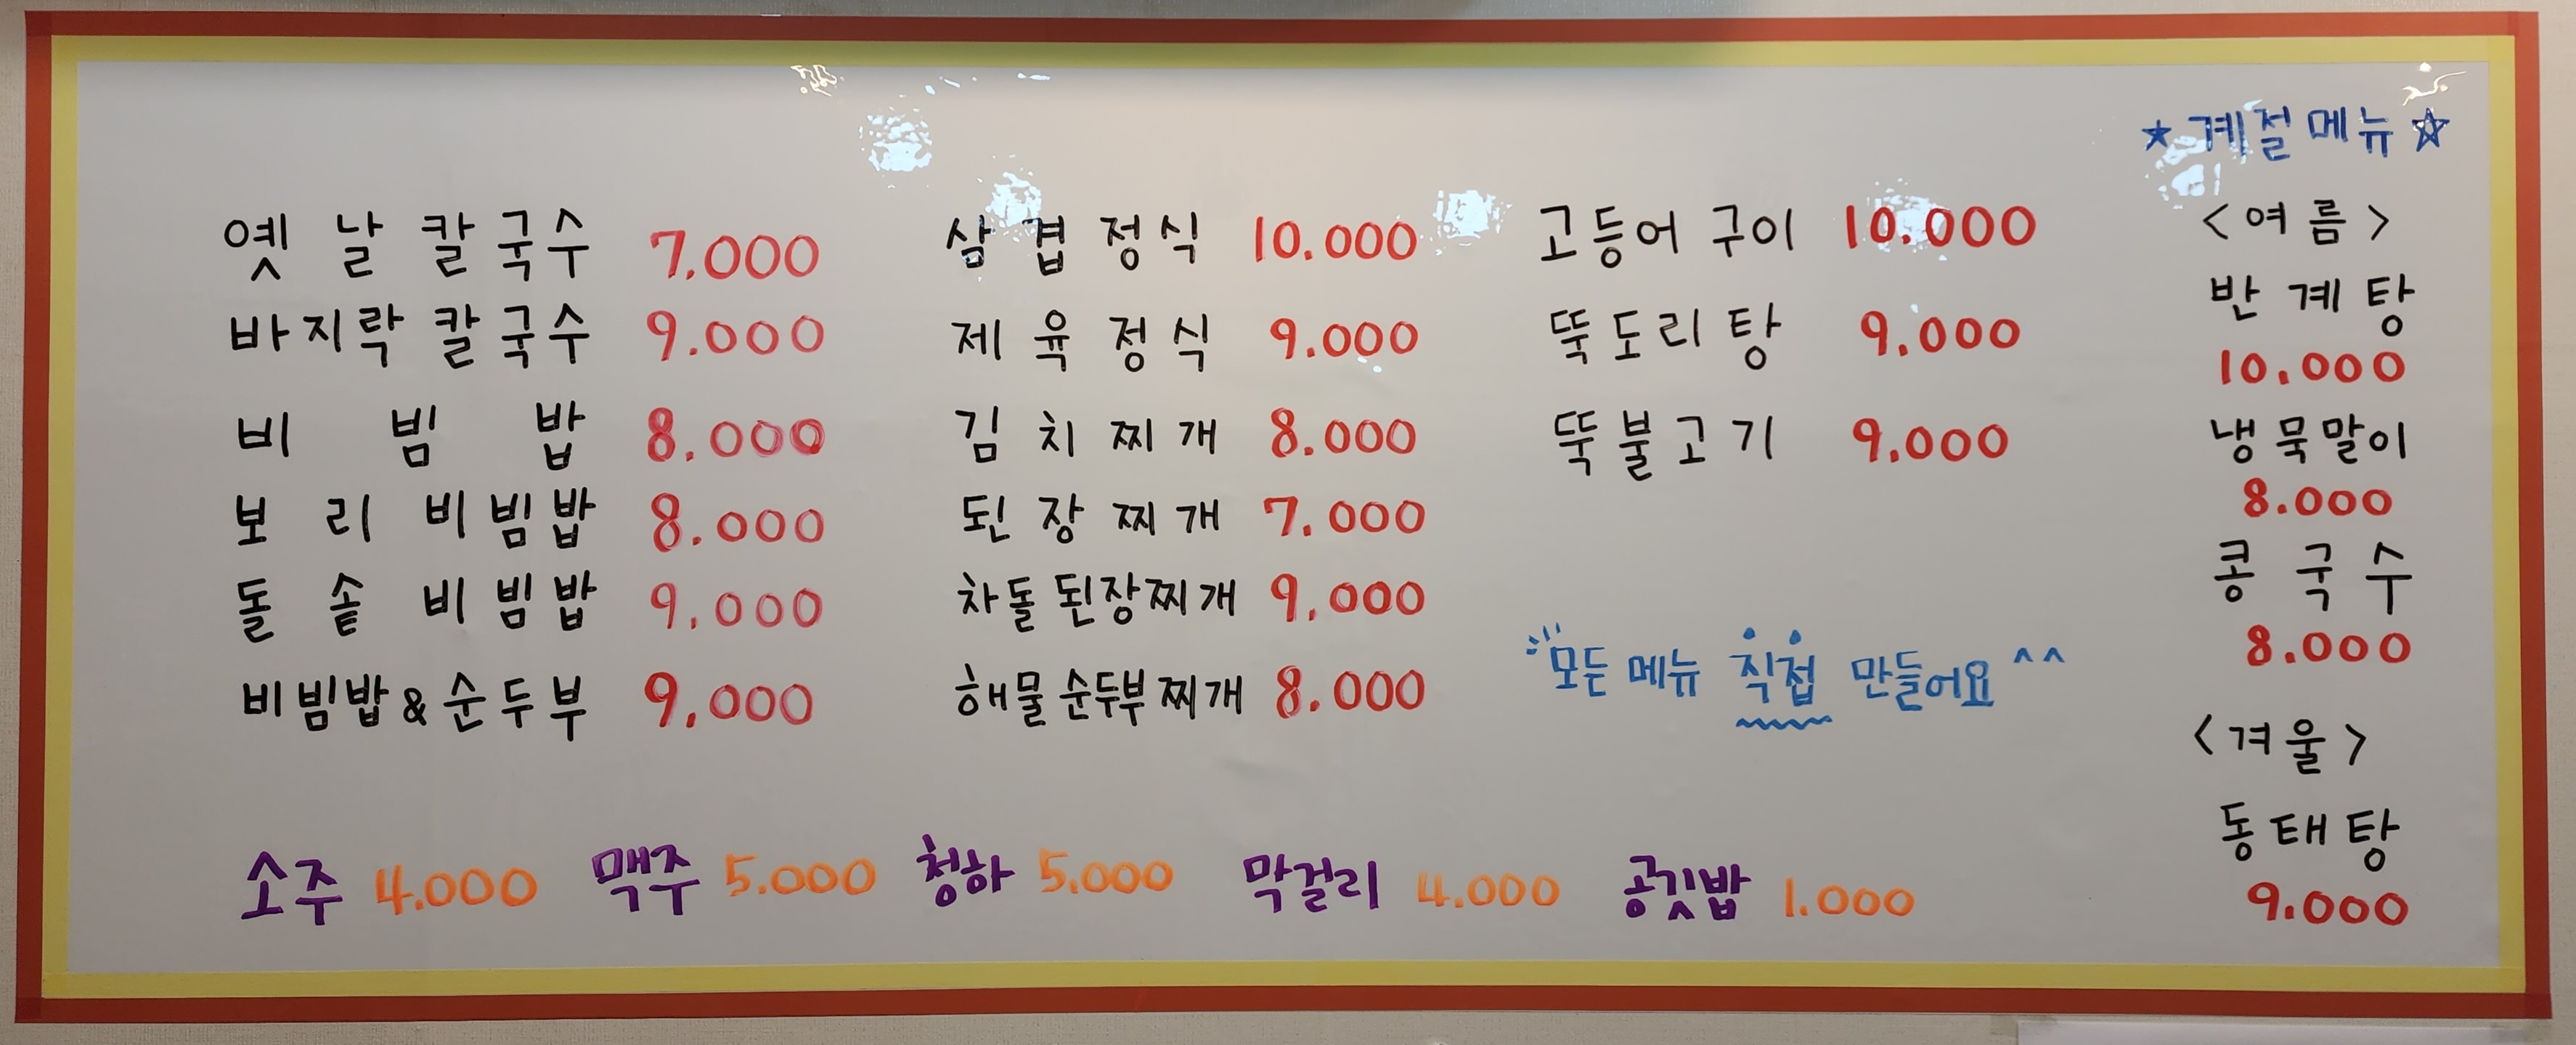 옛날칼국수 7.000
바지락칼국수 9.000
비빔밥 8.000
보리비빔밥 8.000
돌솥비빔밥 9.000
비빔밥&순두부 9.000
삼겹정식 10.000
제육정식 9.000
김치찌개 8.000
된장찌개 7.000
차돌된장찌개 9.000
해물순두부찌개 8.000
고등어구이 10.000
뚝도리탕 9.000
뚝불고기 9.000
모든 메뉴 직접 만들어요 ^^
★계절메뉴☆
<여름>
반계탕
10.000
냉묵말이
8.000
콩국수
8.000
<겨울>
동태탕
9.000
소주 4.000 맥주 5.000 청하 5.000 막걸리 4.000 공깃밥 1.000